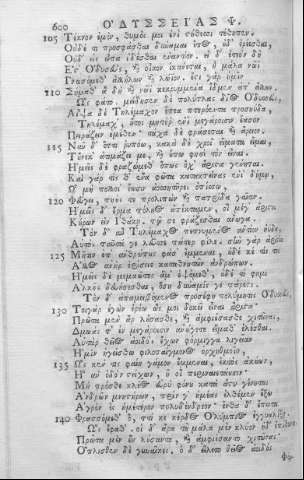 600 Ὀ'ΔΥΣΣΕΙΑΣ Ψ.
105 Τέκνον ἐμὸν, θυμός μοι ἐνὶ στήθεσσι τέθηπεν.
Οὐδέ τι προσφάσθαι δύναμαι ἔπος, οὐδ' ἐρέεσθαι,
Οὐδ' εἰς ὦπα ἰδέσθαι ἐναντίον. εἰ δ' ἐτεὸν δὴ
Ἔστ' Ὀδυσεὺς, καὶ οἶκον ἱκάνεται, ἦ μάλα νῶϊ
Γνωσόμεθ' ἀλλήλων καὶ λώϊον. ἔστι γὰρ ἡμῖν
110 Σήμαθ' ἃ δὴ καὶ νῶϊ κεκρυμμένα ἴδμεν ἀπ' ἄλλων.
Ὣς φάτο, μείδησεν δὲ πολύτλας δῖος Ὀδυσσεύς,
Αἶψα δὲ Τηλέμαχον ἔπεα πτερόεντα προσηύδα,
Τηλέμαχ', ἤτοι μητέρ' ἐνὶ μεγάροισιν ἔασον
Πειράζειν ἐμέθεν· τάχα δὲ φράσεται καὶ ἄρειον.
115 Νῦν δ' ὅττι ῥυπόω, κακὰ δὲ χροῒ εἵματα εἷμαι,
Τούνεκ' ἀτιμάζει με, καὶ οὔπω φησὶ τὸν εἶναι.
Ἡμεῖς δὲ φραζώμεθ' ὅπως ὄχ' ἄριστα γένηται.
Καὶ γάρ τίς θ' ἕνα φῶτα κατακτείνας ἐνὶ δήμῳ,
Ὧ μὴ πολλοὶ ἔωσιν ἀοσσητῆρες ὀπίσσω,
120 Φεύγει, πηούς τε προλιπὼν καὶ πατρίδα γαῖαν.
Ἡμεῖς δ' ἕρμα πόληος ἀπέκταμεν, οἳ μέγ' ἄριστοι
Κούρων εἰν Ἰθάκῃ. τὰ δέ σε φράζεσθαι ἄνωγα.
Τὸν δ' αὖ Τηλέμαχος πεπνυμένος ἀντίον ηὔδα,
Αὐτὸς ταῦτά γε λεῦσσε πάτερ φίλε. σὴν γὰρ ἀρίστην
125 Μῆτιν ἐπ' ἀνθρώπους φάσ' ἔμμεναι, οὐδέ κέ τίς τοι
Ἄλλος ἀνὴρ ἐρίσειε καταθνητῶν ἀνθρώπων.
Ἡμεῖς δὲ μεμαῶτες ἅμ' ἑψόμεθ', οὐδέ τί φημι
Ἀλκῆς δευήσεσθαι, ὅση δύναμίς γε πάρεστι.
Τὸν δ' ἀπαμειβόμενος προσέφη πολύμητις Ὀδυσσεύς,
130 Τοιγὰρ ἐγὼν ἐρέω ὥς μοι δοκεῖ εἶναι ἄριστα·
Πρῶτα μὲν ἂρ λούσασθε, καὶ ἀμφιέσασθε χιτῶνας,
Δμωὰς τ' ἐν μεγάροισιν ἀνώγετε εἵμαθ' ἑλέσθαι.
Αὐτὰρ θεῖος ἀοιδὸς ἔχων φόρμιγγα λίγειαν
Ἡμῖν ἡγείσθω φιλοπαίγμονος ὀρχηθμοῖο,
135 Ὥς κέν τις φαίη γάμον ἔμμεναι, ἐκτὸς ἀκούων,
Ἢ ἀν' ὁδὸν στείχων, ἢ οἳ περιναιετάουσι·
Μὴ πρόσθε κλέος εὐρὺ φόνου κατὰ ἄστυ γένηται
Ἀνδρῶν μνηστήρων, πρίν γ' ἡμέας ἐλθέμεν ἔξω
Ἀγρὸν ἐς ἡμέτερον πολυδένδρεον· ἔνθα δ' ἔπειτα
140 Φρασσόμεθ' ὅ, ττί κε κέρδος Ὀλύμπιος ἐγγυαλίξῃ.
Ὣς ἔφαθ'. οἱ δ' ἄρα τοῦ μάλα μὲν κλύον ἠδ' ἐπίθοντο.
Πρῶτα μὲν οὖν λούσαντο, καὶ ἀμφιέσαντο χιτῶνας·
Ὅπλισθεν δὲ γυναῖκες. ὁ δ' εἵλετο θεῖος ἀοιδὸς